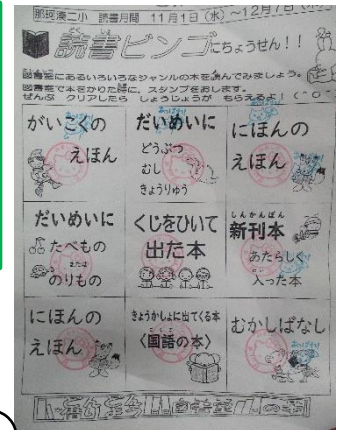 那珂湊二小 読書月間 11月1日(水)~12月7日
読書ビンゴにちょうせん!!
図書室にあるいろいろなジャンルの本を読んでみましょう。
図書室で本をかりた時に、スタンプをおします。
ぜんぶ クリアしたら しょうじょうが もらえるよ!(^O^)
がいこくの
えほん
だいめいに
どうぶつ
むし
きょうりゅう
にほんの
えほん
だいめいに
たべもの
または
のりもの
くじをひいて
出た本
しんかんぼん
新刊本
あたらしく
入った本
にほんの
えほん
きょうかしょに出てくる本
〈国語の本〉
むかしばなし